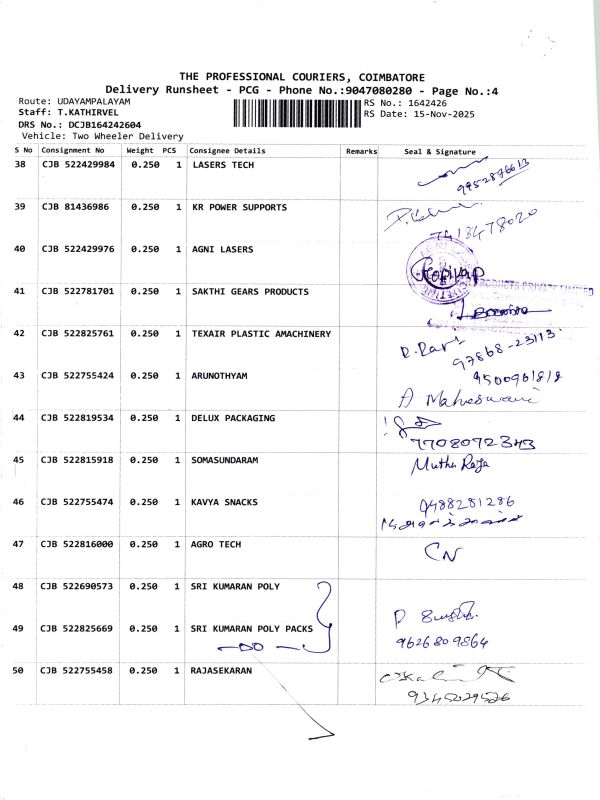 THE PROFESSIONAL COURIERS, COIMBATORE
Delivery Runsheet - PCG - Phone No.:9047080280 - Page No.:4
Route: UDAYAMPALAYAM
Staff: T.KATHIRVEL
DRS No.: DCJB164242604
Vehicle: Two Wheeler Delivery
RS No.: 1642426
RS Date: 15-Nov-2025
S No Consignment No Weight PCS Consignee Details Remarks Seal & Signature
38 CJB 522429984 0.250 1 LASERS TECH
9952876613
39 CJB 81436986 0.250 1 KR POWER SUPPORTS
7413478020
40 CJB 522429976 0.250 1 AGNI LASERS
41 CJB 522781701 0.250 1 SAKTHI GEARS PRODUCTS
PRODUCTS PRIVATE LIMITED
42 CJB 522825761 0.250 1 TEXAIR PLASTIC AMACHINERY
97868-23113
43 CJB 522755424 0.250 1 ARUNOTHYAM
9500961818
A Maheswari
44 CJB 522819534 0.250 1 DELUX PACKAGING
7708072343
45 CJB 522815918 0.250 1 SOMASUNDARAM
Muthu Raja
46 CJB 522755474 0.250 1 KAVYA SNACKS
9488281286
47 CJB 522816000 0.250 1 AGRO TECH
CN
48 CJB 522690573 0.250 1 SRI KUMARAN POLY
49 CJB 522825669 0.250 1 SRI KUMARAN POLY PACKS
-DO-
9626809864
50 CJB 522755458 0.250 1 RAJASEKARAN
9345029526